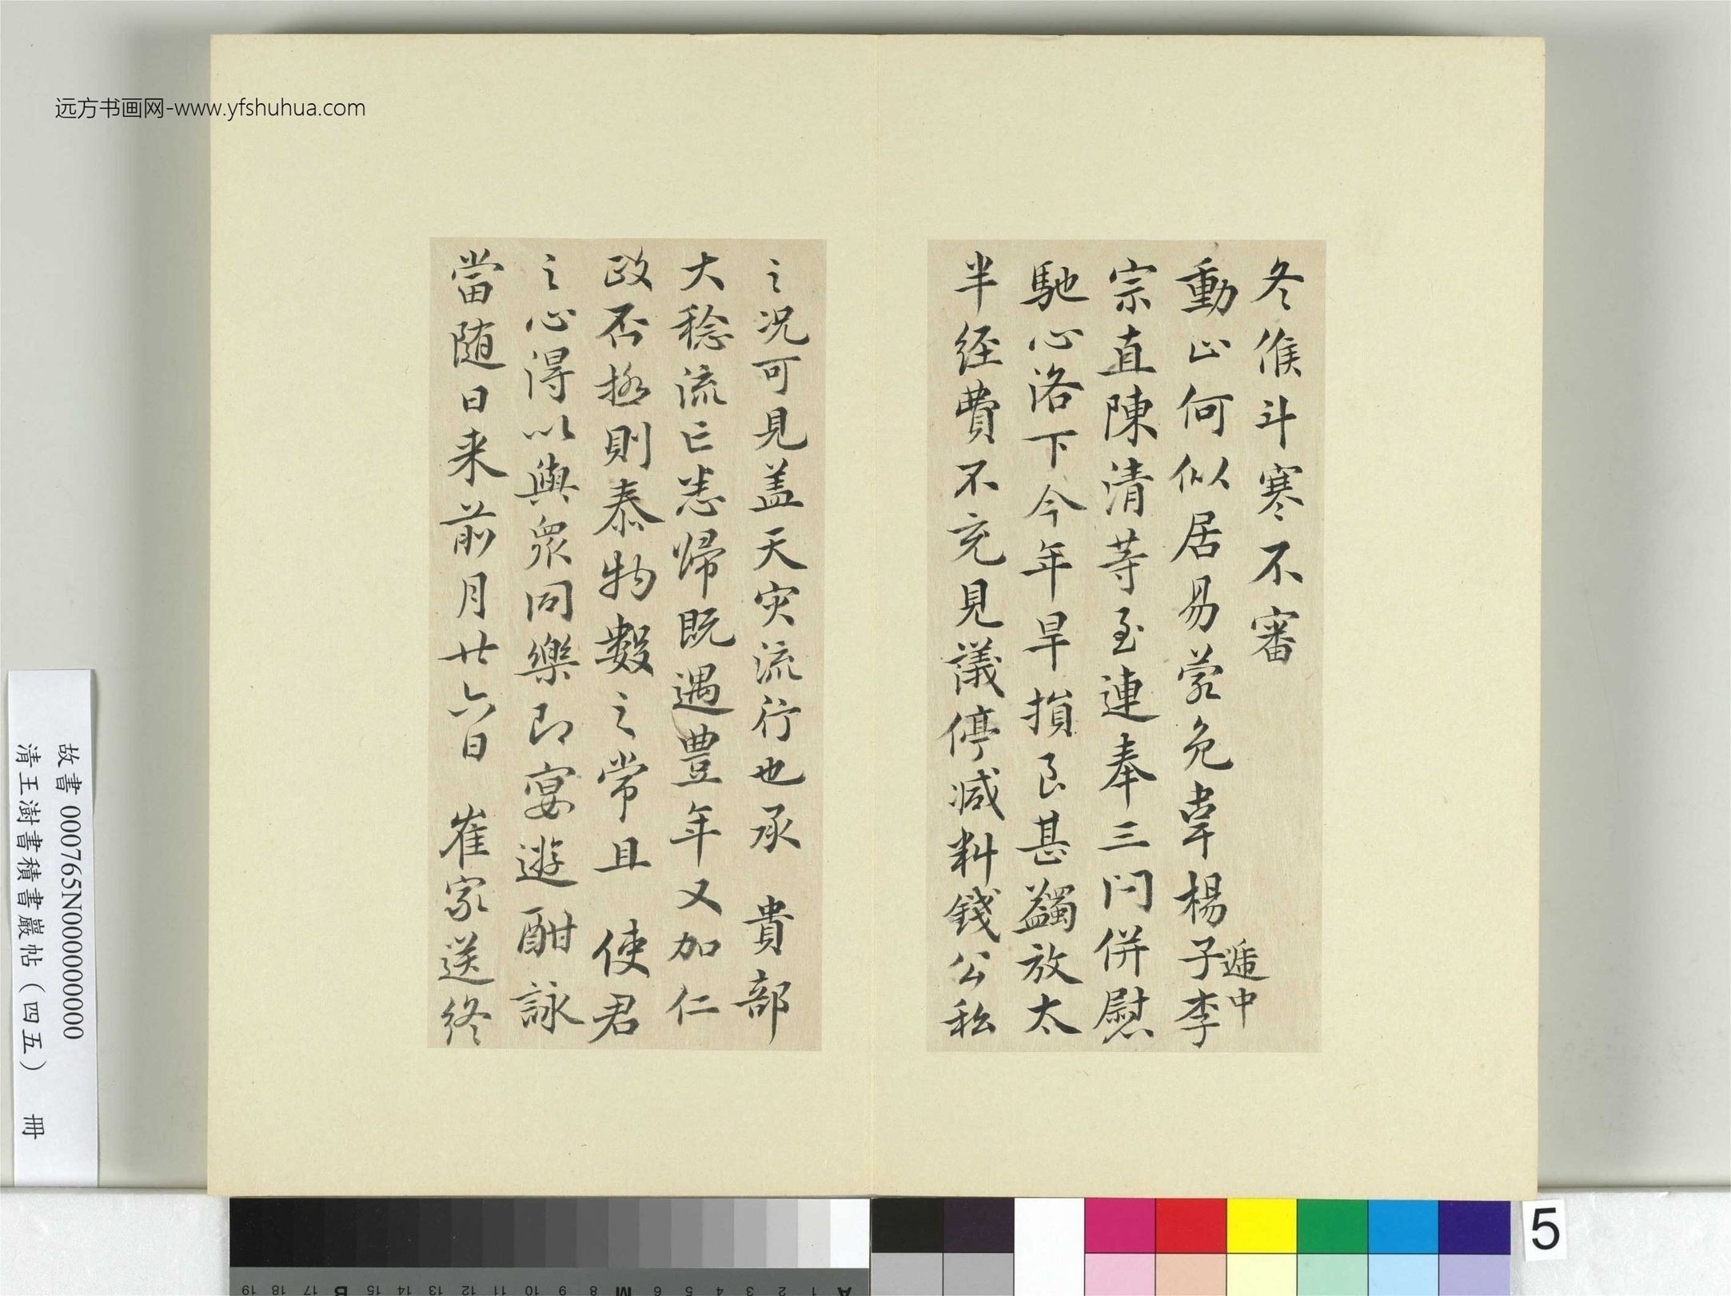 远方书画网-www.yfshuhua.com
冬候斗寒不審
動止何似居易蒙免韋楊子李
遞中
宗直陳清等至連奉三问併慰
馳心洛下今年旱損至甚蠲放太
半经費不充見議停减料錢公私
之况可見盖天灾流行也承 貴部
大稔流亡悉歸既遇豊年又加仁
政否极則泰物數之常且 使君
之心得以與衆同樂即宴遊酣詠
當随日来前月廿六日 崔家送终
故書 000765N000000000
清王澍書積書巖帖（四五） 冊
5
19 18 17 B 15 14 13 12 11 10 9 8 M 6 5 4 3 2 1 A